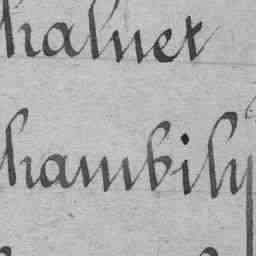 haluet
hambily